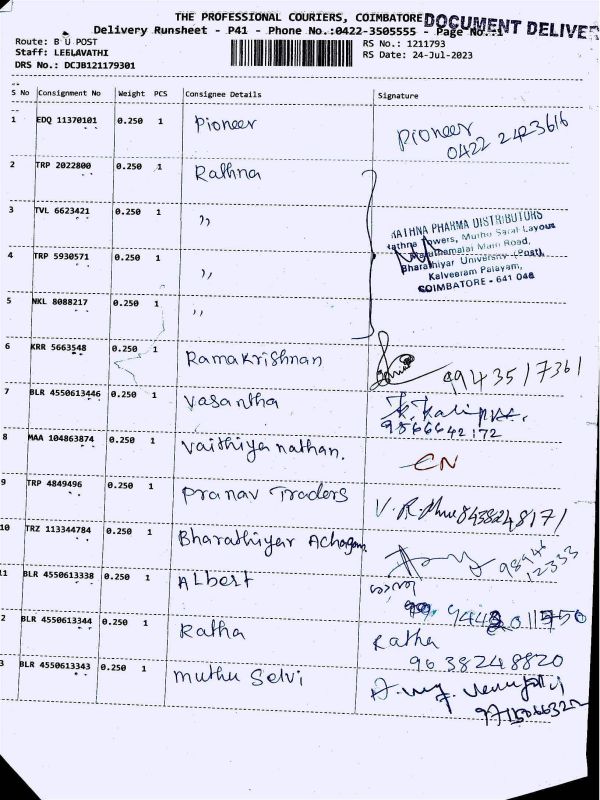 THE PROFESSIONAL COURIERS, COIMBATORE DOCUMENT DELIVER
Delivery Runsheet - P41 - Phone No.:0422-3505555 - Page No.:1
Route: B U POST
Staff: LEELAVATHI
DRS No.: DCJB121179301
RS No.: 1211793
RS Date: 24-Jul-2023
S No Consignment No Weight PCS Consignee Details Signature
1 EDQ 11370101 0.250 1 Pioneer Pioneer
0422 2423616
2 TRP 2022800 0.250 1 Rathna
3 TVL 6623421 0.250 1 ,,
RATHNA PHARMA DISTRIBUTORS
Rathna Towers, Layout
Maruthamalai Main Road,
Bharathiyar University (Post),
Kalveeram Palayam,
COIMBATORE - 641 046
4 TRP 5930571 0.250 1 ,,
5 NKL 8088217 0.250 1 ,,
6 KRR 5663548 0.250 1 Ramakrishnan 9943517361
7 BLR 4550613446 0.250 1 Vasantha
9566642172
8 MAA 104863874 0.250 1 Vaithiyanathan. CN
9 TRP 4849496 0.250 1 Pranav Traders V.R. 8438248171
10 TRZ 113344784 0.250 1 Bharathiyar 98946
12333
11 BLR 4550613338 0.250 1 Albert
2 BLR 4550613344 0.250 1 Ratha Ratha
9638248820
3 BLR 4550613343 0.250 1 Muthu Selvi